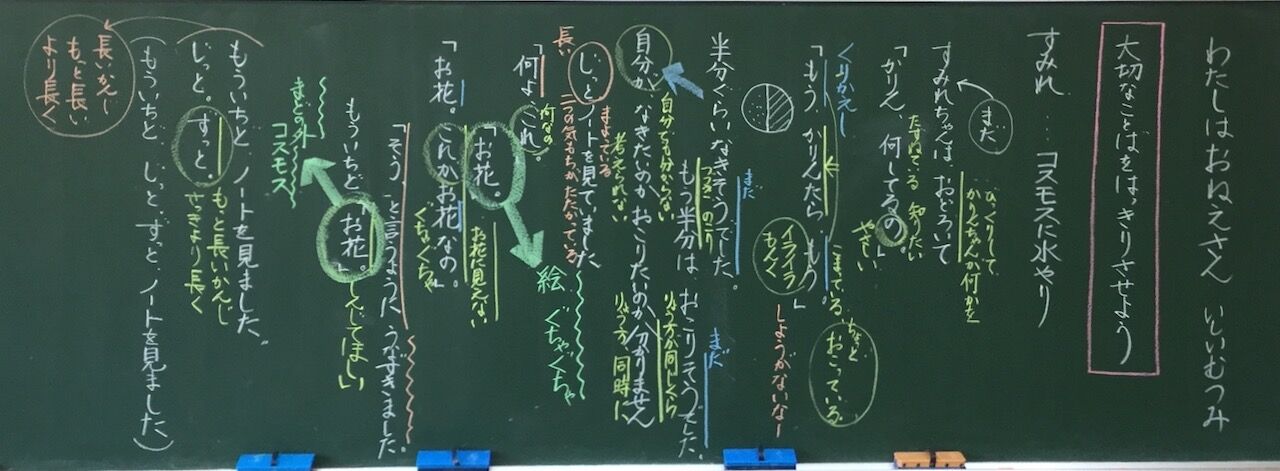 わたしはおねえさん いしいむつみ
大切なことばをはっきりさせよう
すみれ…コスモスに水やり
まだ
びっくりして
かりんちゃんが何かを
すみれちゃんは、おどろいて
たずねている 知りたい
「かりん、何してるの。」
やさしい
くりかえし
「もう、かりんたら、もう。」
こまっている
ちょっと
おこっている
イライラ
もんく
しょうがないなー
まだ
半分ぐらいなきそうでした。
もう半分は、おこりそうでした。
まだ
つづき のこり
自分が、なきたいのかおこりたいのか分かりません
自分でも分からない
考えられない
りょう方が同じくらい
りょう方 同時に
じっとノートを見ていました。
長い
まよっている
二つの気もちがたたかっている
「何よ、これ。」
何なの
「お花。」
絵 ぐちゃぐちゃ
お花に見えない
「お花。これがお花なの。」
ぐちゃぐちゃ
「そう」と言うように、うなずきました。
もういちど「お花。」
しんじてほしい
まどの外
コスモス
もういちど、ノートを見ました。
じっと。ずっと。
もっと長いかんじ
さっきより長く
(もういちど、じっと、ずっと、ノートを見ました。)
長いかんじ
もっと長い
より長く